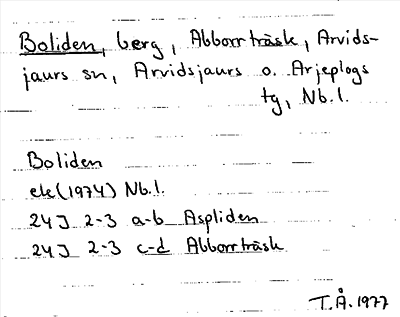 Boliden, berg, Abborrträsk, Arvids-
jaurs sn, Arvidsjaurs o. Arjeplogs
tg, Nb.l.
Boliden
ek (1974) Nb.l.
24J 2-3 a-b Aspliden
24J 2-3 c-d Abborrträsk
T.Å. 1977